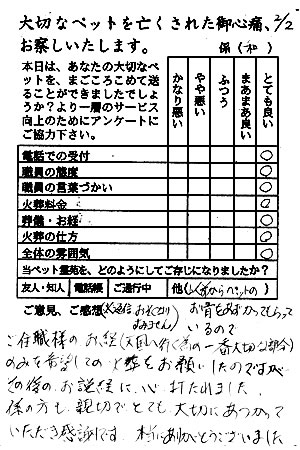 大切なペットを亡くされた御心痛、2/2
お察しいたします。 係(和)
本日は、あなたの大切なペ
ットを、まごころこめて送
ることができましたでしょ
うか?より一層のサービス
向上のためにアンケートに
ご協力下さい。
かなり悪い
やや悪い
ふつう
まあまあ良い
とても良い
電話での受付 ○
職員の態度 ○
職員の言葉づかい ○
火葬料金 ○
葬儀・お経 ○
火葬の仕方 ○
全体の雰囲気 ○
当ペット霊苑を、どのようにしてご存じになりましたか?
友人・知人 電話帳 ご通行中 他(以前からペットの)
ご意見、ご感想 (返信おそくなり すみません) お骨をあずかってもらって
いるので
ご住職様のお経(天国へ行く為の一番大切な部分)
のみを希望しての火葬をお願いしたのですが
その後のお説経に、心打たれました。
係の方も、親切でとても大切にあつかって
いただき感謝です。本当にありがとうございました